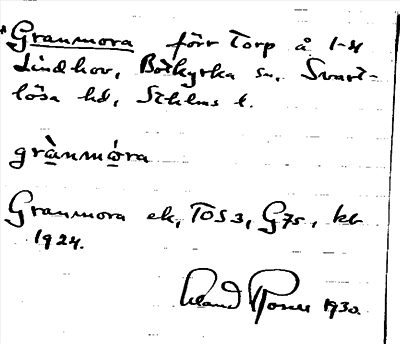 *Granmora förr Torp å 1-4
Lindhov, Botkyrka sn, Svart-
lösa hd, Sthlms l.
grànmóra
Granmora ek, TOS 3, G7s, kb
1924.
1930.